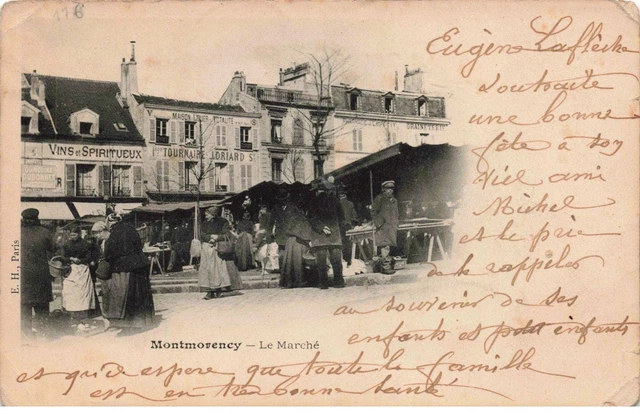 116
Eugène Laflèche
souhaite
une bonne
fête à son
vieil ami
Michel
et le prie
de le rappeler
au souvenir de ses
enfants et petit enfants
et qu'il espère que toute la famille
est en très bonne santé
VINS ET SPIRITUEUX
TOURNAIRE LORIARD Sr
GRAINETERIE
E. H., Paris
Montmorency – Le Marché